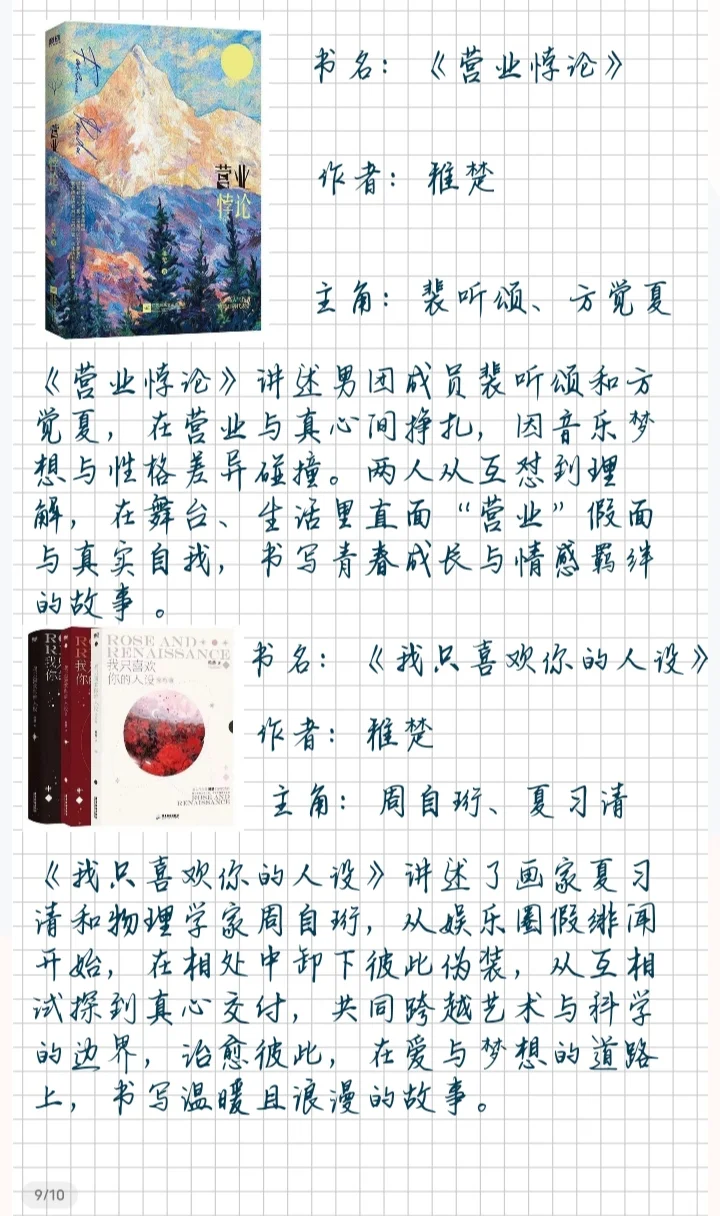 营业
悖论
书名：《营业悖论》
作者：稚楚
主角：裴听颂、方觉夏
《营业悖论》讲述男团成员裴听颂和方
觉夏，在营业与真心间挣扎，因音乐梦
想与性格差异碰撞。两人从互怼到理
解，在舞台、生活里直面“营业”假面
与真实自我，书写青春成长与情感羁绊
的故事。
ROSE AND
RENAISSANCE
我只喜欢
你的人设
ROSE AND
RENAISSANCE
书名：《我只喜欢你的人设》
作者：稚楚
主角：周自珩、夏习清
《我只喜欢你的人设》讲述了画家夏习
清和物理学家周自珩，从娱乐圈假绯闻
开始，在相处中卸下彼此伪装，从互相
试探到真心交付，共同跨越艺术与科学
的边界，治愈彼此，在爱与梦想的道路
上，书写温暖且浪漫的故事。
9/10